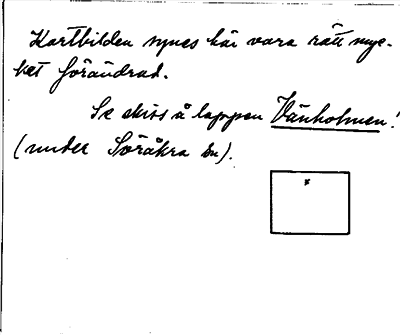 Kartbilden synes här vara rätt myc-
ket förändrad.
Se skiss å lappen Vänholmen!
(under Söråkra bn).